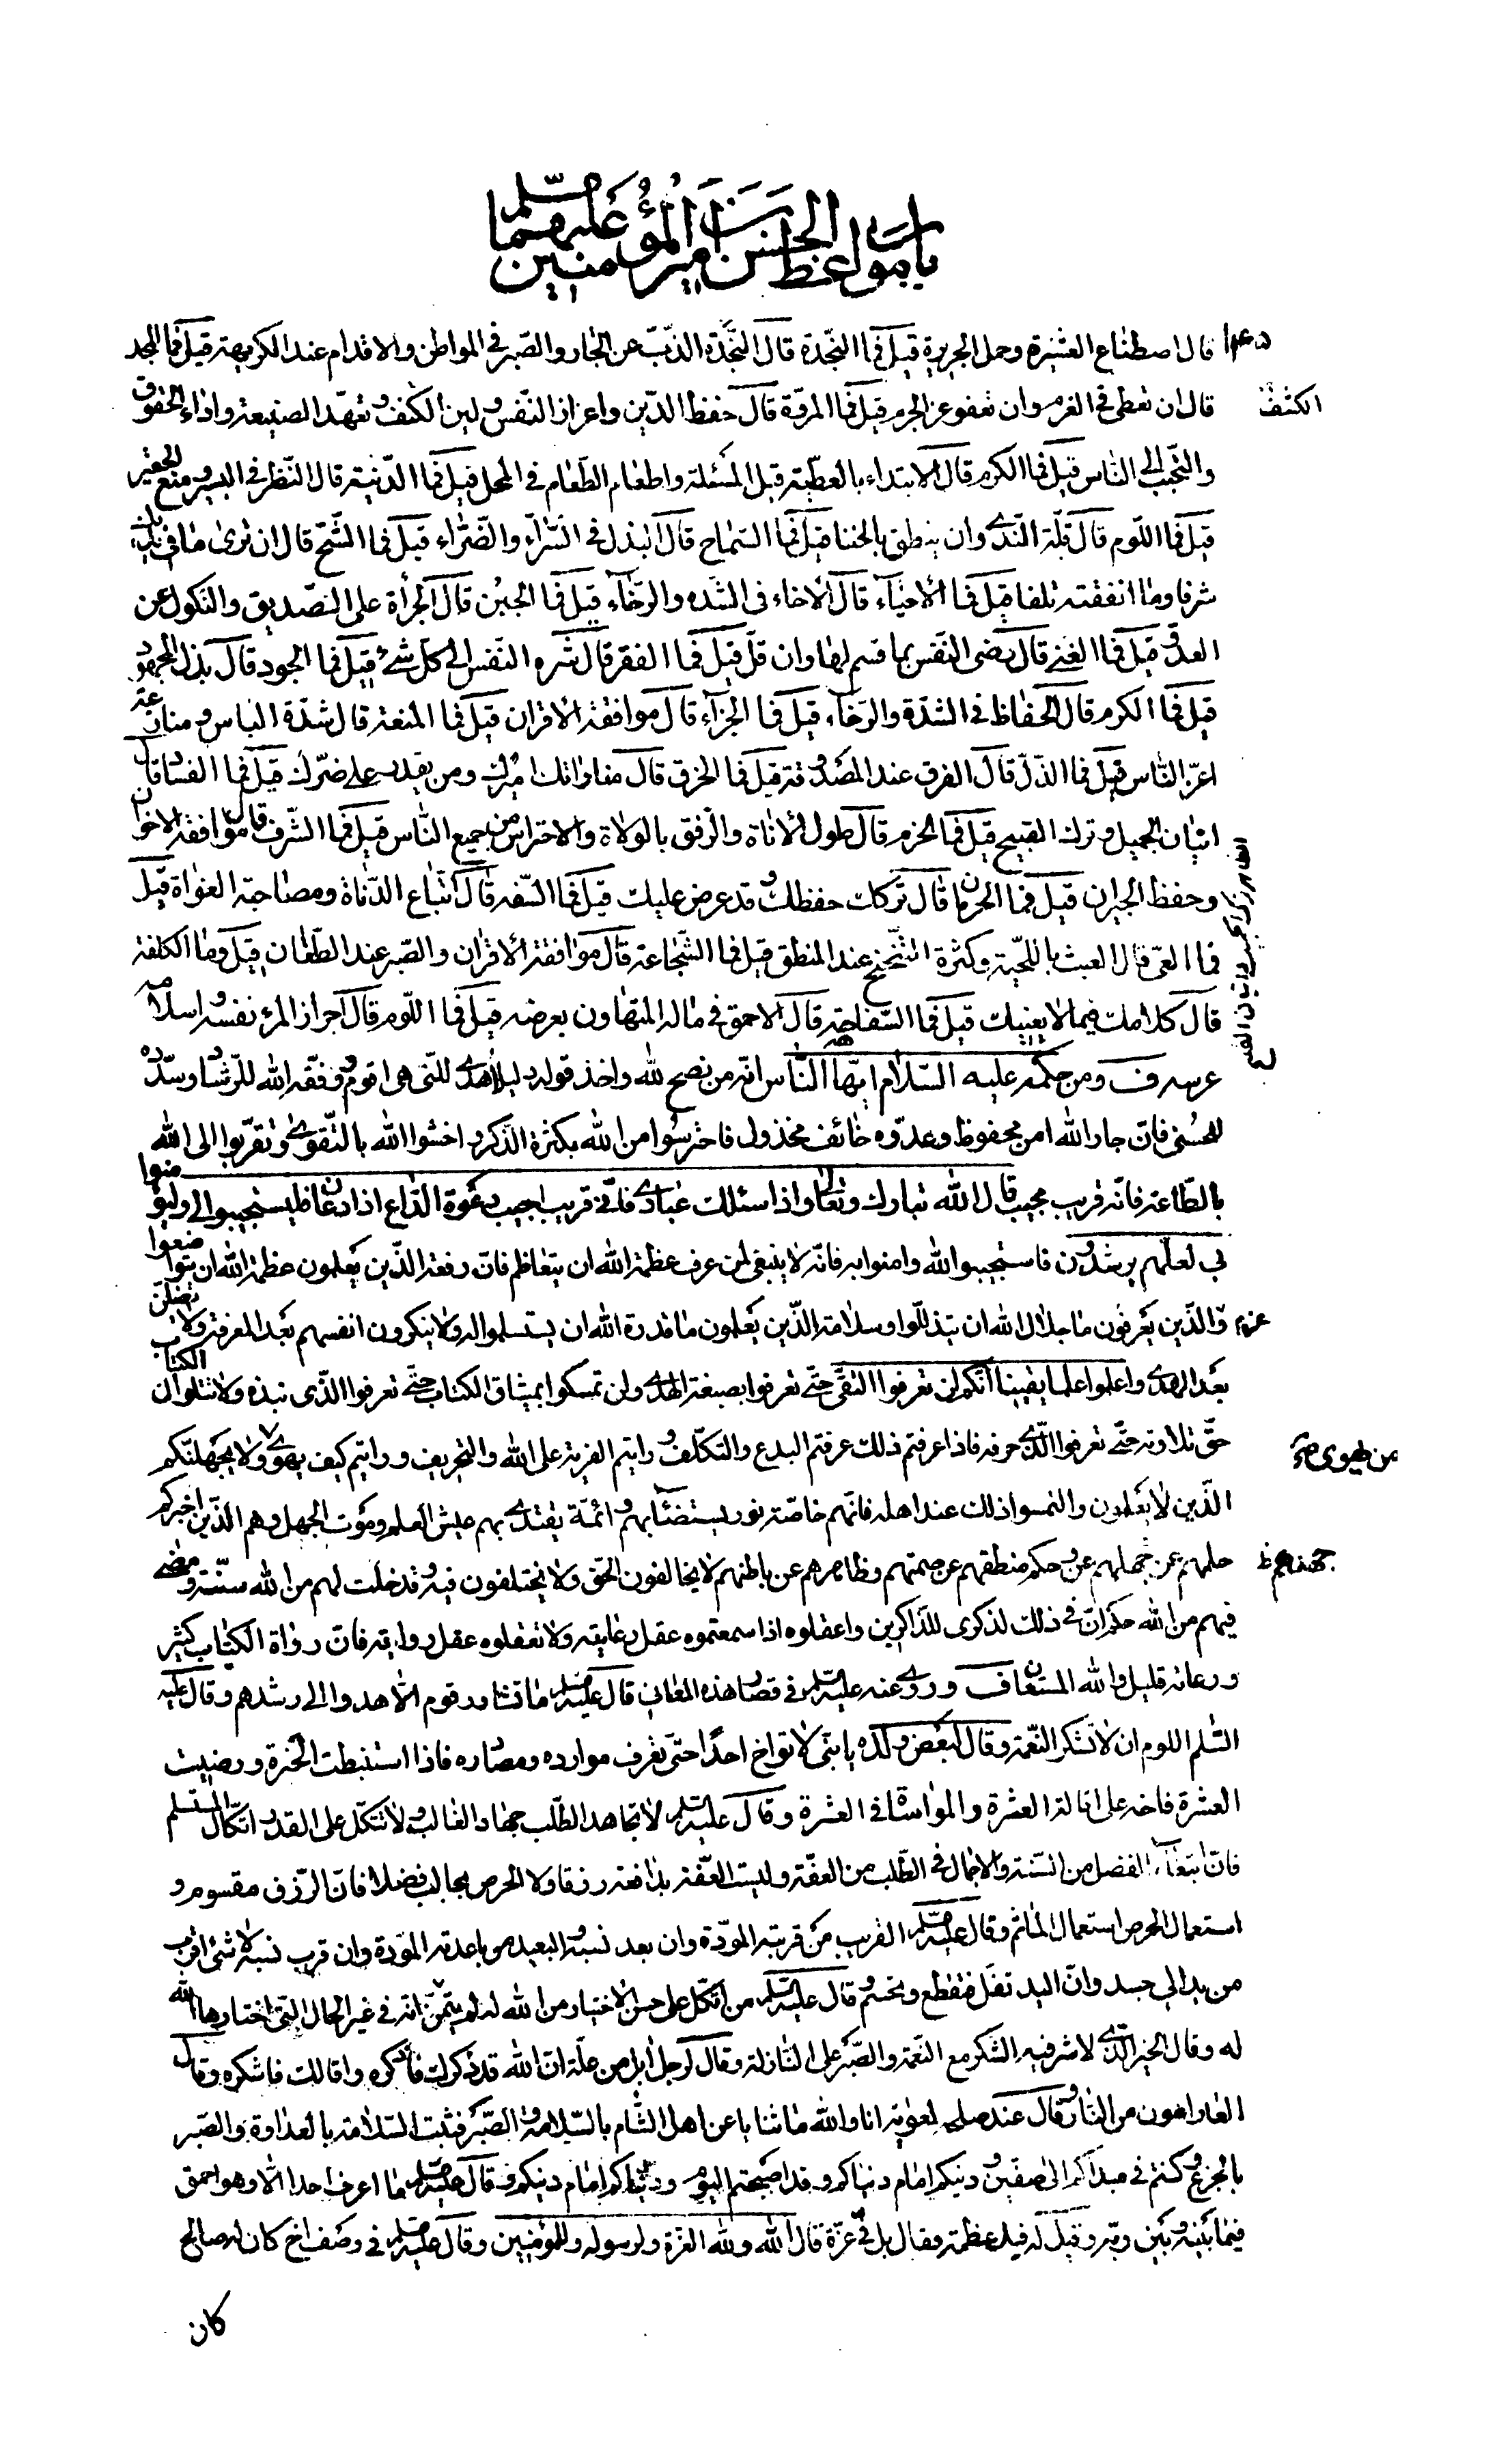 باب مواعظ الحسن بن امير المؤمنين عليهما السلم
قال اصطناع العشيرة وحمل الجريرة قيل فما النجدة قال النجدة الذبّ عن الجار والصّبر في المواطن والاقدام عند الكريهة قيل فما المجد
الكنف
قال ان تعطى في الغرم وان تعفو عن الجرم قيل فما المروّة قال حفظ الدّين واعزاز النّفس ولين الكنف وتعهّد الصنيعة واداء الحقوق
والتحّبب الى النّاس قيل فما الكرم قال الابتداء بالعطيّة قبل المسئلة واطعام الطّعام في المحل قيل فما الدّنيئة قال النّظر في اليسير ومنع الحقير
قيل فما اللّوم قال قلّة النّدى وان ينطق بالخنا قيل فما السّماح قال البذل في السّرّآء والضّرّاء قيل فما الشّحّ قال ان ترى ما في يديك
شرفا وما انفقته تلفا قيل فما الاخآء قال الاخاء في الشّده والرّخآء قيل فما الجبن قال الجرأة على الصّديق والنكول عن
العدوّ قيل فما الغنى قال رضى النّفس بما قسم لها وان قلّ قيل فما الفقر قال شره النّفس الى كلّ شئ قيل فما الجود قال بذل المجهود
قيل فما الكرم قال الحفاظ في الشدّة والرّخآء قيل فما الجرآء قال موافقة الاقران قيل فما المنعة قال شدّة الباس ومنازعة
اعزّ النّاس قيل فما الذّلّ قال الفرق عند المصدوقة قيل فما الخرق قال مناواتك اميرك ومن يقدر على ضرّك قيل فما السناء قال
اتيان الجميل وترك القبيح قيل فما الحزم قال طول الاناة والرّفق بالولاة والاحتراس من جميع النّاس قيل فما الشّرف قال موافقة الاخوان
وحفظ الجيران قيل فما الحرمان قال تركك حظّك وقد عرض عليك قيل فما السّفه قال اتّباع الدّناة ومصاحبة الغواة قيل
فما العىّ قال العبث باللّحية وكثرة التّنحنح عند المنطق قيل فما الشّجاعة قال موافقة الاقران والصّبر عند الطّعان قيل وما الكلفة
قال كلامك فيما لا يعنيك قيل فما السّفاهة قال الاحمق في ماله المتهاون بعرضه قيل فما اللّوم قال احراز المرء نفسه واسلامه
عرسه ف ومن حكمه عليه السّلام ايّها النّاس انّه من نصح لله واخذ قوله دليلا هدى للّتى هى اقوم ووفّقه الله للرّشاد وسدّده
للحسنى فانّ جار الله امن محفوظ وعدوّه خائف مخذول فاحترسوا من الله بكثرة الذكر واخشوا الله بالتّقوى وتقرّبوا الى الله
بالطّاعة فانّه قريب مجيب قال الله تبارك وتعالى واذا سئلك عبادى عنّى فانّى قريب اجيب دعوة الدّاع اذا دعان فليستجيبوا لى وليؤمنوا
بى لعلّهم يرشدون فاستجيبوا لله وامنوا به فانّه لا ينبغى لمن عرف عظمة الله ان يتعاظم فانّ رفعة الّذين يعلمون عظمة الله ان يتواضعوا
وّالّذين يعرفون ما جلال الله ان يتذلّلوا وسلامة الّذين يعلمون ما قدرة الله ان يستسلموا له ولا ينكرون انفسهم بعد المعرفة ولا يضلّنّ
بعد الهدى واعلموا علما يقينا انّكم لن تعرفوا التقى حتّى تعرفوا بصبغة الهدى ولن تمسكوا بميثاق الكتاب حتّى تعرفوا الّذى نبذه ولا تتلوا الكتاب
حقّ تلاوته حتّى تعرفوا الّذى حرفه فاذا عرفتم ذلك عرفتم البدع والتكلّف ورايتم الفرية على الله والتحريف ورايتم كيف يهوى ولا يجهلنّكم
من يهوى
الّذين لا يعلمون والتمسوا ذلك عند اهله فانّهم خاصّة نور يستضآء بهم وائمّة يقتدى بهم عيش العلم وموت الجهل وهم الّذين اخبركم
حلمهم عن جهلهم وحكم منطقهم عن صمتهم وظاهرهم عن باطنهم لا يخالفون الحقّ ولا يختلفون فيه وقد خلت لهم من الله سنّة ومضى
فيهم من الله حكم انّ في ذلك لذكرى للذّاكرين واعقلوه اذا سمعتموه عقل رعاية ولا تعقلوه عقل رواية فانّ رواة الكتاب كثير
ورعاته قليل والله المستعان ف وروى عنه عليه السلم في قصار هذه المعانى قال عليه السلم ما تشاور قوم الّا هدوا الى رشدهم وقال عليه
السّلم اللوم ان لا تشكر النّعمة وقال لبعض ولده يا بنىّ لا تواخ احدًا حتّى تعرف موارده ومصادره فاذا استنبطت الخبرة ورضيت
العشرة فاخه على اقالة العثرة والمواساة في العشرة وقال عليه السلم لا تجاهد الطّلب جهاد الغالب ولا تتّكل على القدر اتّكال المستسلم
فانّ ابتغآء الفضل من السّنة والاجمال في الطّلب من العفّة وليست العفّة بدافعة رزقا ولا الحرص بجالب فضلا فانّ الرّزق مقسوم و
استعمال الحرص استعمال المأثم وقال عليه السلم القريب من قربته المودّة وان بعد نسبه والبعيد من باعدته المودّة وان قرب نسبه لا شئ اقرب
من يد الى جسد وانّ اليد تفلّ فتقطع وتحسم وقال عليه السلم من اتّكل على حسن الاختيار من الله له لم يتمنّ انّه في غير الحال الّتى اختارها الله
له وقال الخير الّذى لا شرّ فيه الشّكر مع النّعمة والصّبر على النّازلة وقال لرجل ابلّ من علّة انّ الله قد ذكرك فاذكره واقالك فاشكره وقال
العار اهون من النّار وقال عند صلحه لمعوية انا والله ما ثنانا عن اهل الشّام بالسّلامة والصّبر فثبت السّلامة بالعداوة والصّبر
بالجزع وكنتم في مبداكم الى صفّين ودينكم امام دنياكم وقد اصبحتم اليوم ودنياكم امام دينكم وقال عليه السلم ما اعرف احدا الّا وهو احمق
فيما بينه وبين ربّه وقيل له فيك عظمة وقال بل فيّ عزّة قال الله ولله العزّة ولرسوله وللمؤمنين وقال عليه السلم في وصف اخ كان له صالح
كان